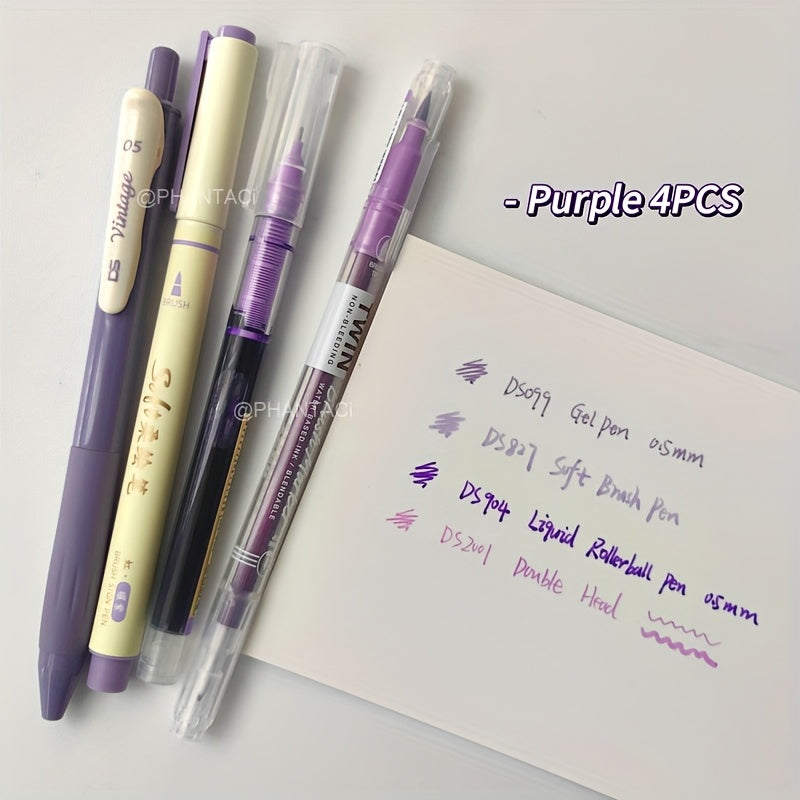 - Purple 4PCS
@PHANTACi
@PHANTACi
05
DS Vintage
BRUSH
Soft
BRUSH SIGN PEN
TWIN
NON-BLEEDING
WATER BASED INK / BLENDABLE
DS099 Gel pen 0.5mm
DS827 Soft Brush Pen
DS904 Liquid Rollerball pen 0.5mm
DS2001 Double Head